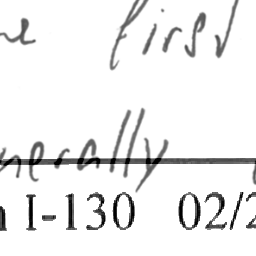 ne first
nerally
n I-130 02/2